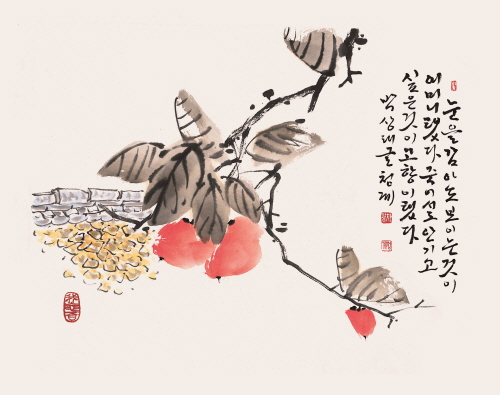 눈을 감아도 보이는 것이
어머니였다 죽어서도 안기고
싶은 것이 고향이였다
글 청계